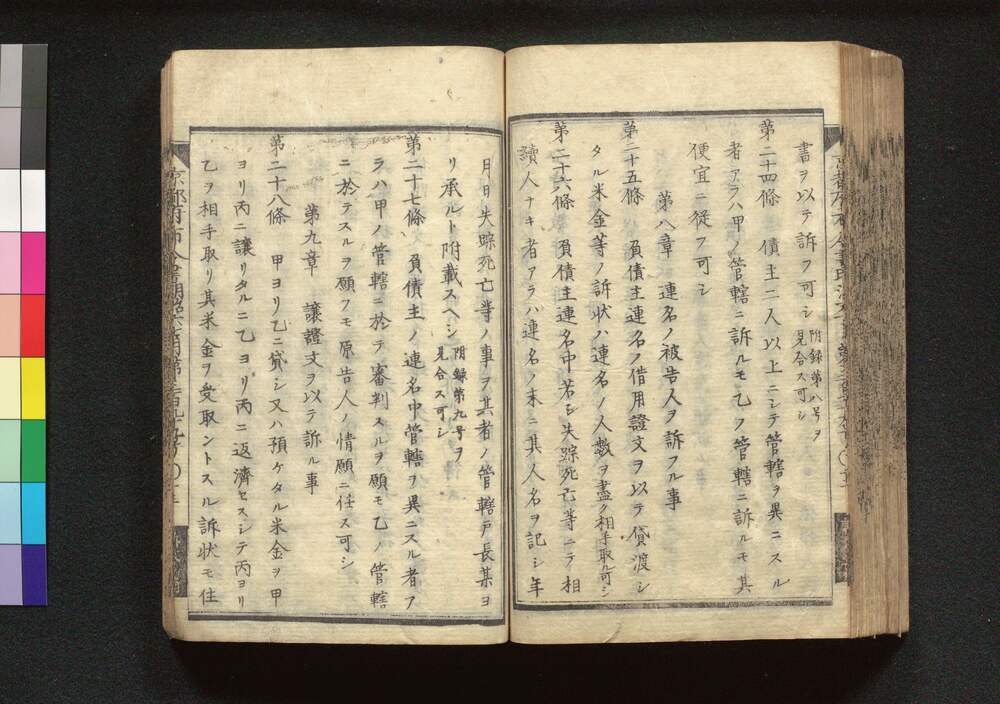 書ヲ以テ訴フ可シ 附録第八号ヲ
見合ス可シ
第二十四條 債主二人以上ニシテ管轄ヲ異ニスル
者アラハ甲ノ管轄ニ訴ルモ乙ノ管轄ニ訴ルモ其
便宜ニ従フ可シ
第八章 連名ノ被告人ヲ訴フル事
第二十五條 負債主連名ノ借用證文ヲ以テ貸渡シ
タル米金等ノ訴状ハ連名ノ人数ヲ盡ク相手取ル可シ
第二十六條 負債主連名中若シ失踪死亡等ニテ相
續人ナキ者アラハ連名ノ末ニ其人名ヲ記シ年
月日失踪死亡等ノ事ヲ其者ノ管轄戸長某ヨ
リ承ルト附載スヘシ 附録第九号ヲ
見合ス可シ
第二十七條 負債主ノ連名中管轄ヲ異ニスル者ア
ラハ甲ノ管轄ニ於テ審判スルヲ願モ乙ノ管轄
ニ於テスルヲ願フモ原告人ノ情願ニ任ス可シ
第九章 讓證文ヲ以テ訴ル事
第二十八條 甲ヨリ乙ニ貸シ又ハ預ケタル米金ヲ甲
ヨリ丙ニ譲リタルニ乙ヨリ丙ニ返濟セスシテ丙ヨリ
乙ヲ相手取リ其米金ヲ受取ントスル訴状モ住